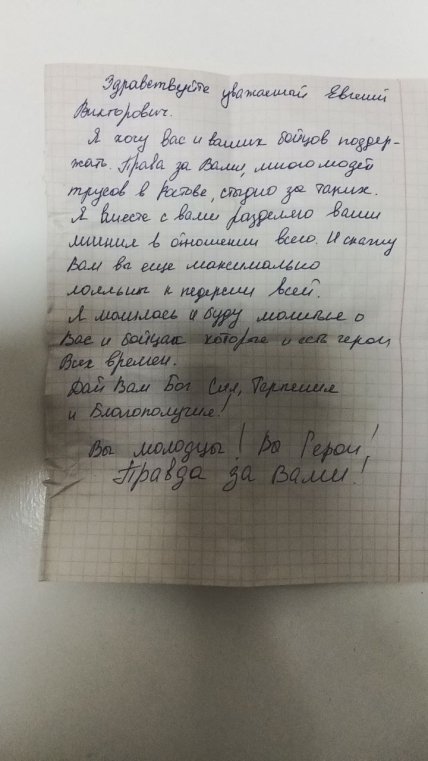 Здравствуйте уважаемый Евгений
Викторович.
Я хочу вас и ваших бойцов поддер-
жать. Права за Вами, много людей
трусов в Ростове, стыдно за таких.
Я вместе с вами разделяю ваши
мнения в отношении всего. И скажу
Вам вы еще максимально
лояльны к педерсии всей.
Я молилась и буду молится о
Вас и бойцах которые и есть герои
Всех времен.
Дай Вам Бог Сил, Терпения
и Благополучия!
Вы молодцы! Вы Герои!
Правда за Вами!